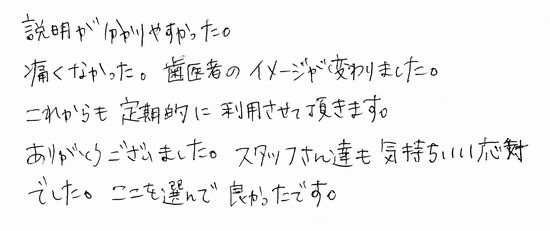 説明が分かりやすかった。
痛くなかった。歯医者のイメージが変わりました。
これからも定期的に利用させて頂きます。
ありがとうございました。スタッフさん達も気持ちいい応対
でした。ここを選んで良かったです。